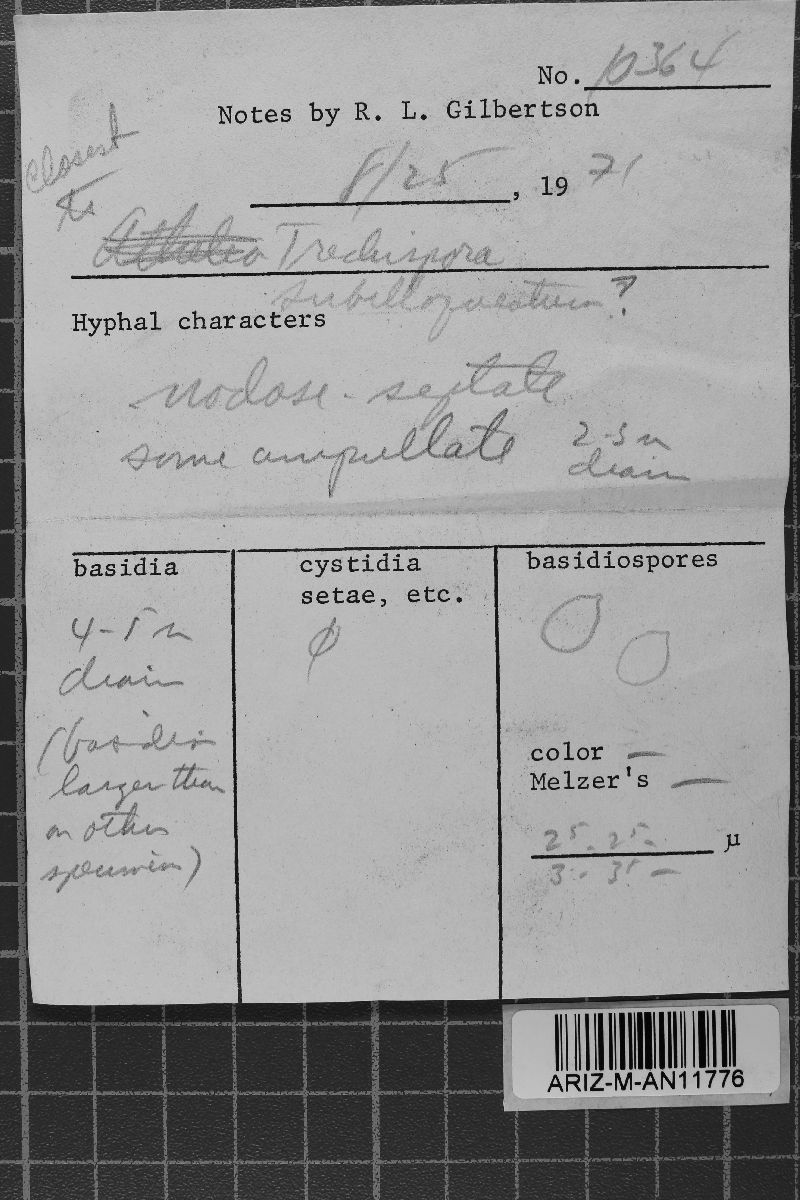 No. 10364
Notes by R. L. Gilbertson
closest
to
8/25, 19 71
Athelia Trechispora
subillaqueatum?
Hyphal characters
nodose-septate
some ampullate 2-3 µ
diam
basidia
4-5 µ
diam
(basidia
larger than
on other
specimen)
cystidia
setae, etc.
ϕ
basidiospores
color —
Melzer's —
µ
ARIZ-M-AN11776